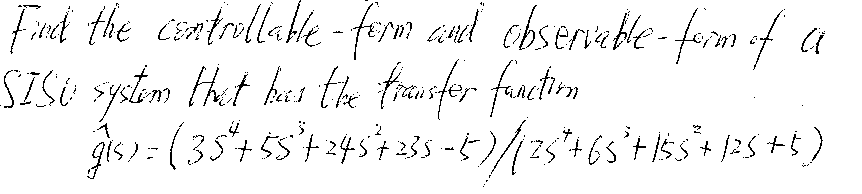 Find the controllable-form and observable-form of a
SISO system that has the transfer function
ĝ(s) = (3s⁴+5s³+24s²+23s-5)/(2s⁴+6s³+15s²+12s+5)